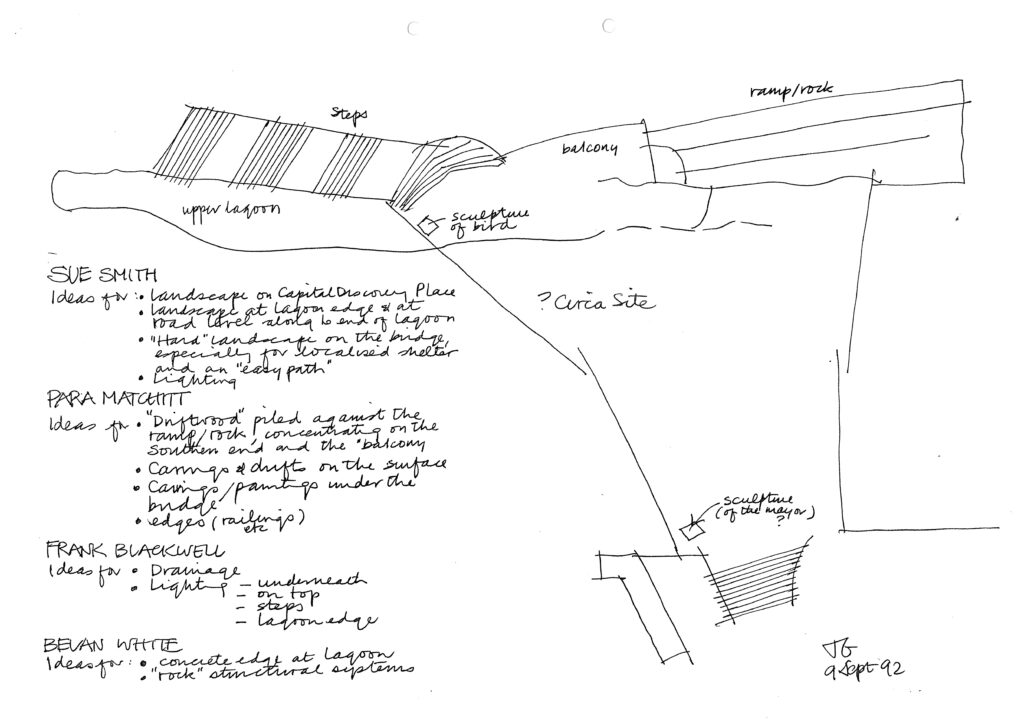 ramp/rock
steps
balcony
upper lagoon
sculpture
of bird
? Circa Site
SUE SMITH
Ideas for: • landscape on Capital Discovery Place
• landscape at lagoon edge & at
road level along to end of lagoon
• "Hard" landscape on the bridge,
especially for localised shelter
and an "easy path"
• Lighting
PARA MATCHITT
Ideas for • "Driftwood" piled against the
ramp/rock, concentrating on the
Southern end and the balcony
• Carvings & drifts on the surface
• Carvings/paintings under the
bridge
• edges (railings)
etc
sculpture
(of the mayor)
?
FRANK BLACKWELL
Ideas for • Drainage
• Lighting – underneath
– on top
– steps
– lagoon edge
BEVAN WHITE
Ideas for: • concrete edge at lagoon
• "rock" structural systems
9 Sept 92